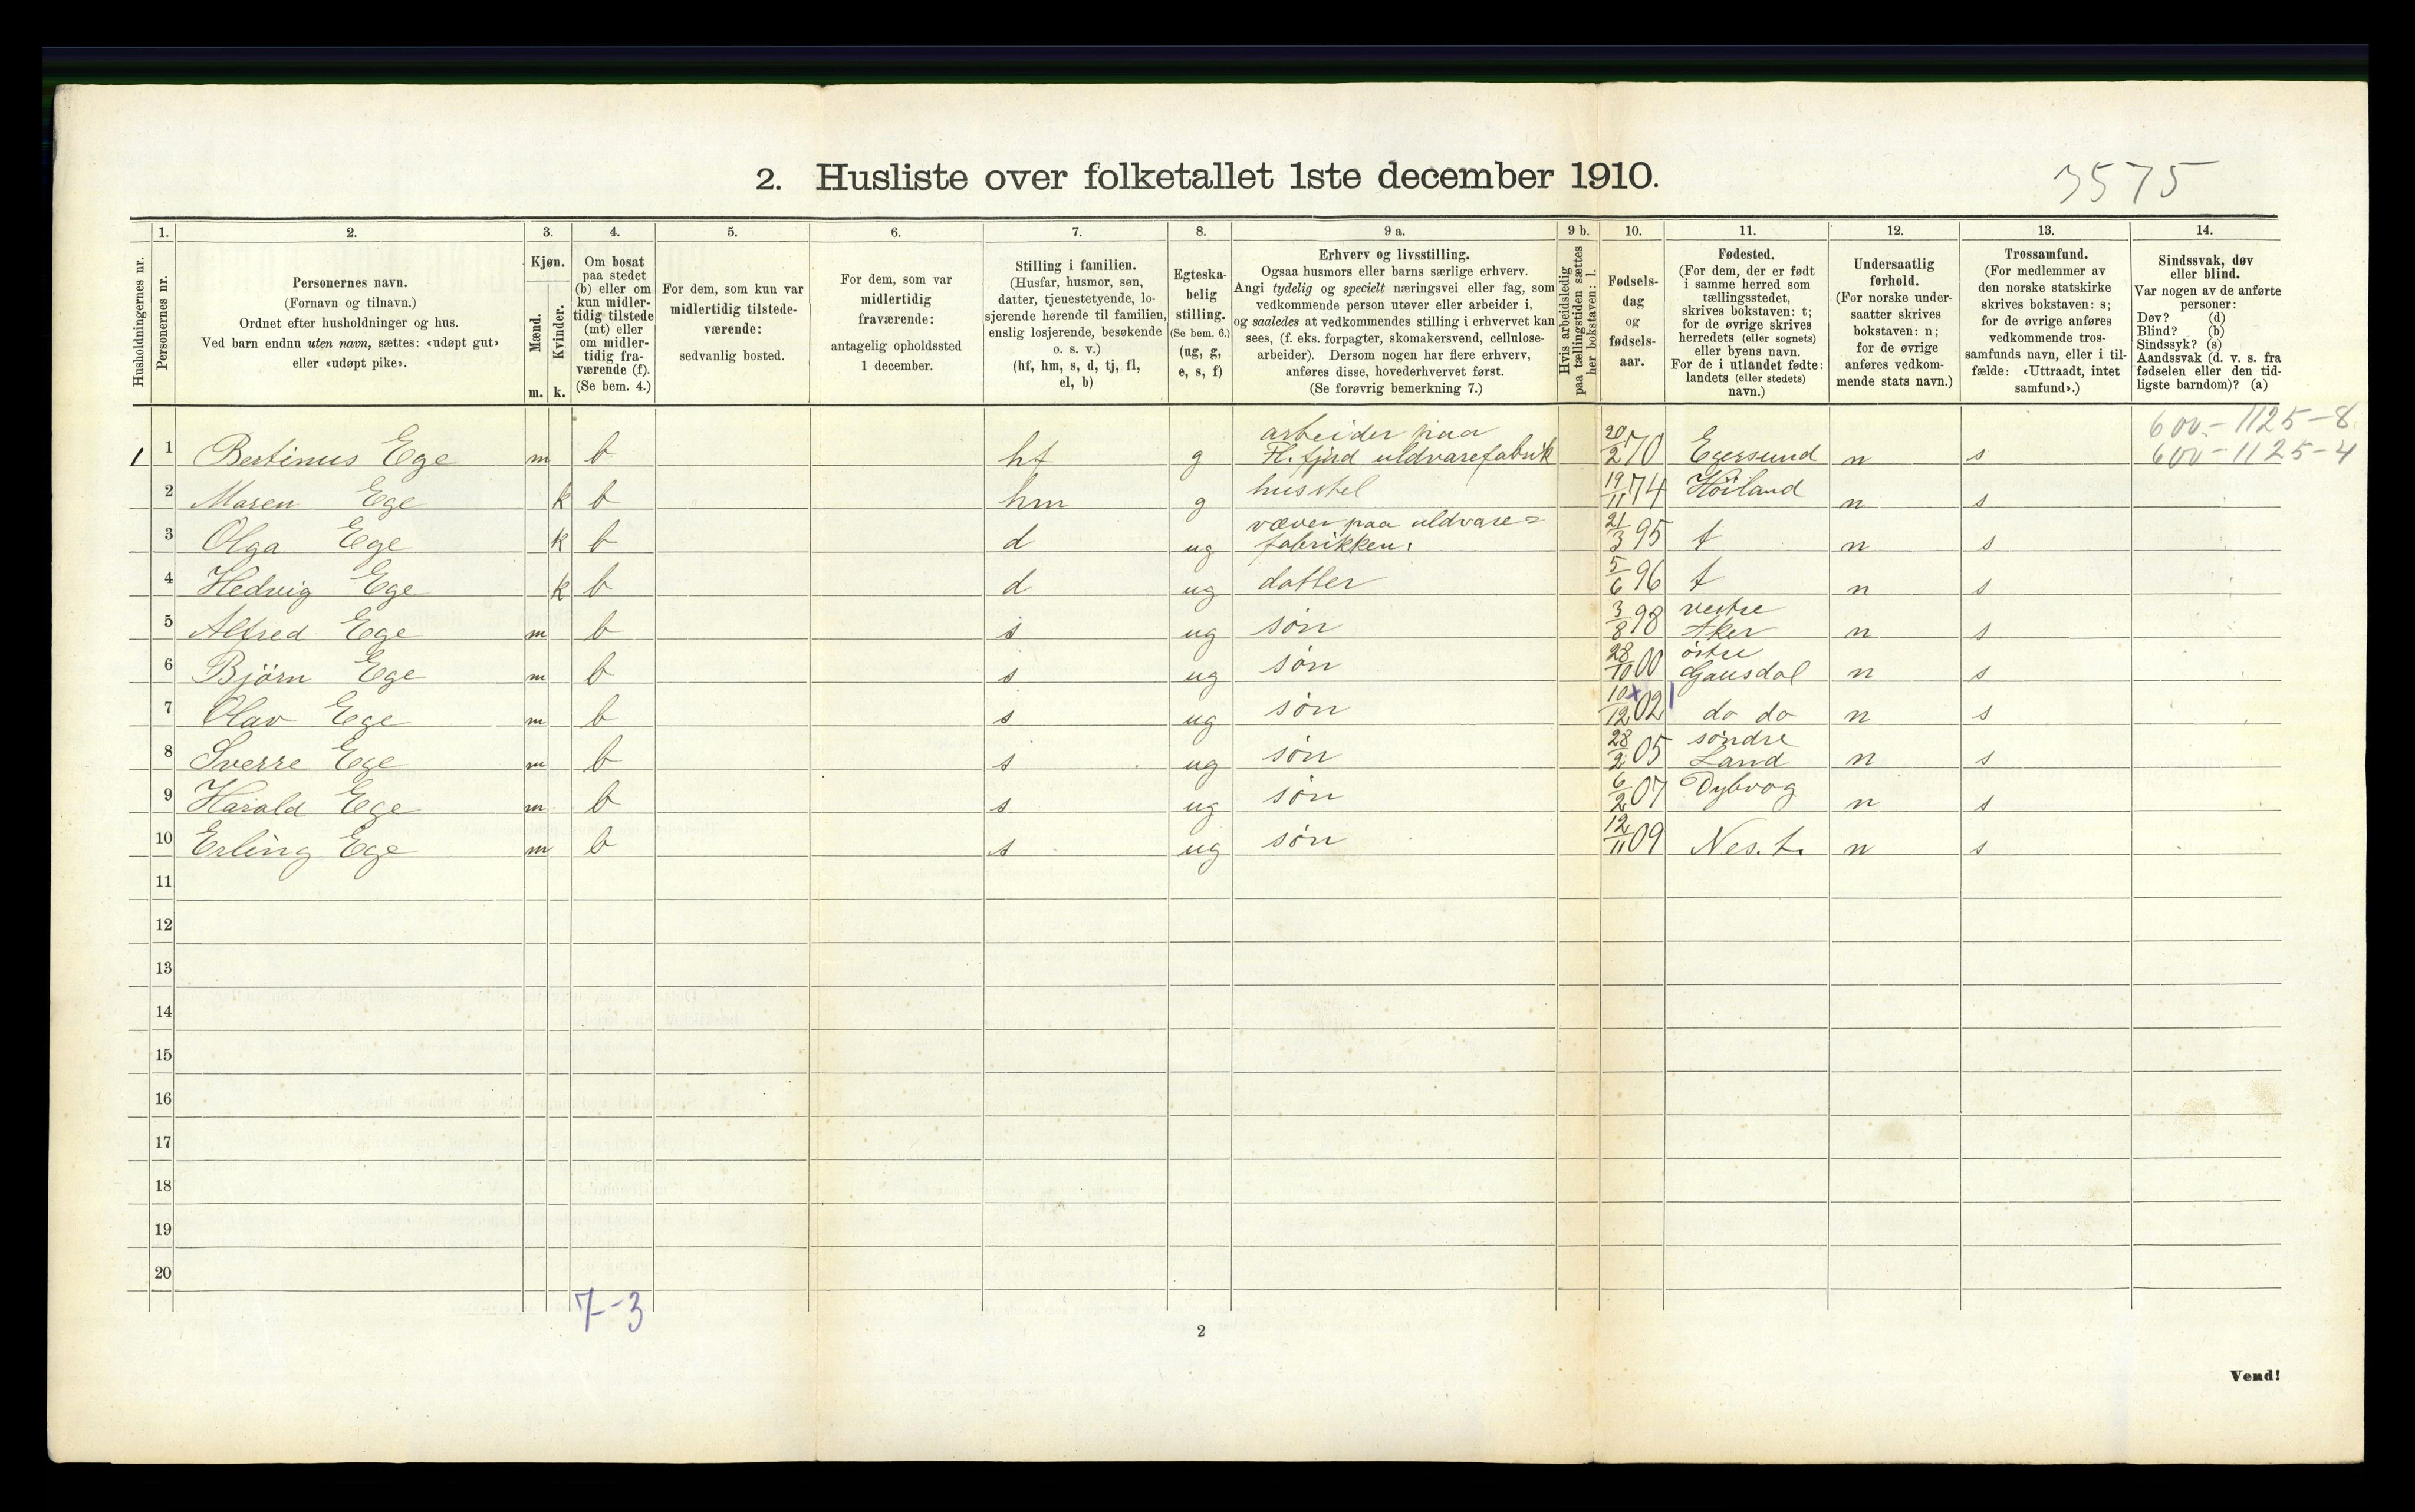 2. Husliste over folketallet 1ste december 1910.
3575
Husholdningernes nr.
1.
Personernes nr.
2.
Personernes navn.
(Fornavn og tilnavn.)
Ordnet efter husholdninger og hus.
Ved barn endnu uten navn, sættes: «udøpt gut»
eller «udøpt pike».
3.
Kjøn.
Mænd.
Kvinder.
m. k.
4.
Om bosat
paa stedet
(b) eller om
kun midler-
tidig tilstede
(mt) eller
om midler-
tidig fra-
værende (f).
(Se bem. 4.)
5.
For dem, som kun var
midlertidig tilstede-
værende:
sedvanlig bosted.
6.
For dem, som var
midlertidig
fraværende:
antagelig opholdssted
1 december.
7.
Stilling i familien.
(Husfar, husmor, søn,
datter, tjenestetyende, lo-
sjerende hørende til familien,
enslig losjerende, besøkende
o. s. v.)
(hf, hm, s, d, tj, fl,
el, b)
8.
Egteska-
belig
stilling.
(Se bem. 6.)
(ug, g,
e, s, f)
9 a.
Erhverv og livsstilling.
Ogsaa husmors eller barns særlige erhverv.
Angi tydelig og specielt næringsvei eller fag, som
vedkommende person utøver eller arbeider i,
og saaledes at vedkommendes stilling i erhvervet kan
sees, (f. eks. forpagter, skomakersvend, cellulose-
arbeider). Dersom nogen har flere erhverv,
anføres disse, hovederhvervet først.
(Se forøvrig bemerkning 7.)
9 b.
Hvis arbeidsledig
paa tællingstiden sættes
her bokstaven: l.
10.
Fødsels-
dag
og
fødsels-
aar.
11.
Fødested.
(For dem, der er født
i samme herred som
tællingsstedet,
skrives bokstaven: t;
for de øvrige skrives
herredets (eller sognets)
eller byens navn.
For de i utlandet fødte:
landets (eller stedets)
navn.)
12.
Undersaatlig
forhold.
(For norske under-
saatter skrives
bokstaven: n;
for de øvrige
anføres vedkom-
mende stats navn.)
13.
Trossamfund.
(For medlemmer av
den norske statskirke
skrives bokstaven: s;
for de øvrige anføres
vedkommende tros-
samfunds navn, eller i til-
fælde: «Uttraadt, intet
samfund».)
14.
Sindssvak, døv
eller blind.
Var nogen av de anførte
personer:
Døv? (d)
Blind? (b)
Sindssyk? (s)
Aandssvak (d. v. s. fra
fødselen eller den tid-
ligste barndom)? (a)
600.- 1125-8
600-1125-4
1 1 Bertinus Ege m b hf g arbeider paa
Fl. fjrd uldvarefabrik 20/2 70 Egersund n s
2 Maren Ege k b hm g husstel 19/11 74 Höiland n s
3 Olga Ege k b d ug væver paa uldvare=
fabrikken. 21/3 95 t n s
4 Hedvig Ege k b d ug datter 5/6 96 t n s
5 Alfred Ege m b s ug søn 3/8 98 vestre
Aker n s
6 Bjørn Ege m b s ug søn 28/10 00 östre
Gausdal n s
7 Olav Ege m b s ug søn 10/12 02 do do n s
8 Sverre Ege m b s ug søn 28/2 05 søndre
Land n s
9 Harald Ege m b s ug søn 6/2 07 Dybvog n s
10 Erling Ege m b s ug søn 12/11 09 Nes. t. n s
11
12
13
14
15
16
17
18
19
20
7-3
2
Vend!